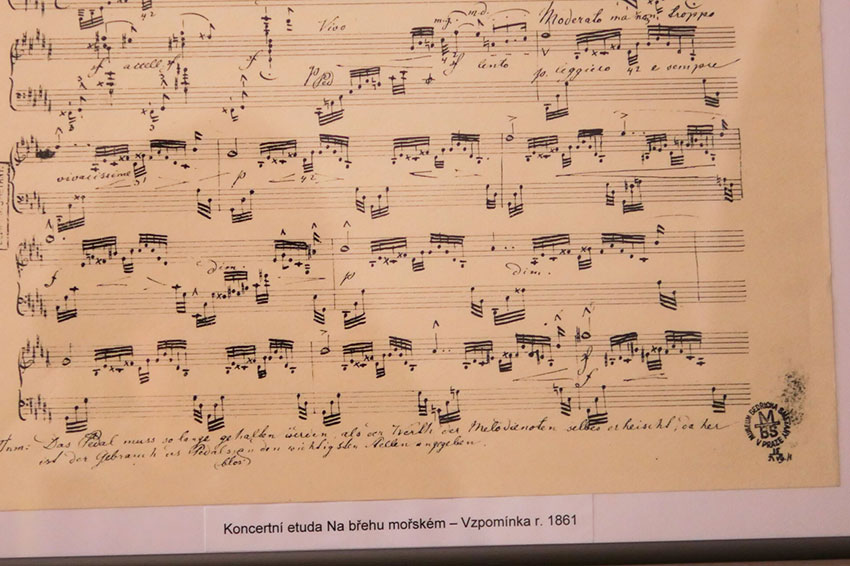 Vivo
m.g. m.d.
Moderato ma non troppo
sf accell. sf sf
p
Ped
sf lento
p. leggiero e sempre
vivacissimo
p
f dim. p dim.
f
Anm: Das Pedal muss so lange gehalten werden, als der Werth der Melodienoten selbes erheischt, da her
ist der Gebrauch des Pedals an den wichtigsten Stellen angegeben.
(blos)
MUSEUM BEDŘICHA SMETANY
V PRAZE
MBS
Koncertní etuda Na břehu mořském – Vzpomínka r. 1861